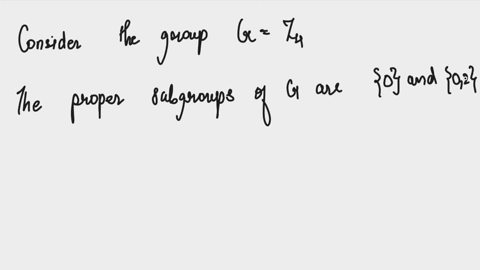 Consider the group G = Z₄
The proper subgroups of G are {0} and {0,2}